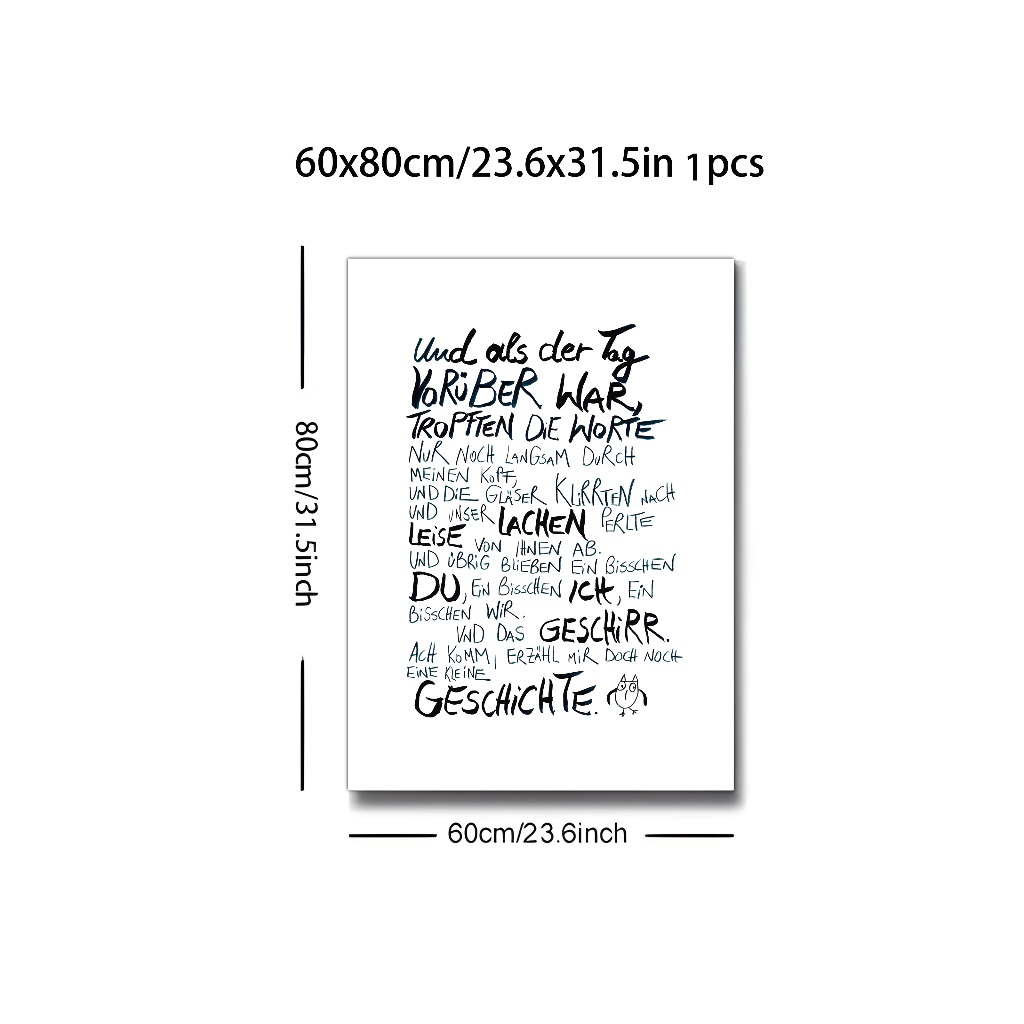 60x80cm/23.6x31.5in 1pcs
80cm/31.5inch
Und als der Tag
VORÜBER WAR,
TROPFTEN DIE WORTE
NUR NOCH LANGSAM DURCH
MEINEN KOPF,
UND DIE GLÄSER KLIRRTEN NACH
UND UNSER LACHEN PERLTE
LEISE VON IHNEN AB.
UND ÜBRIG BLIEBEN EIN BISSCHEN
DU, EIN BISSCHEN ICH, EIN
BISSCHEN WIR.
UND DAS GESCHIRR.
ACH KOMM, ERZÄHL MIR DOCH NOCH
EINE KLEINE
GESCHICHTE.
60cm/23.6inch